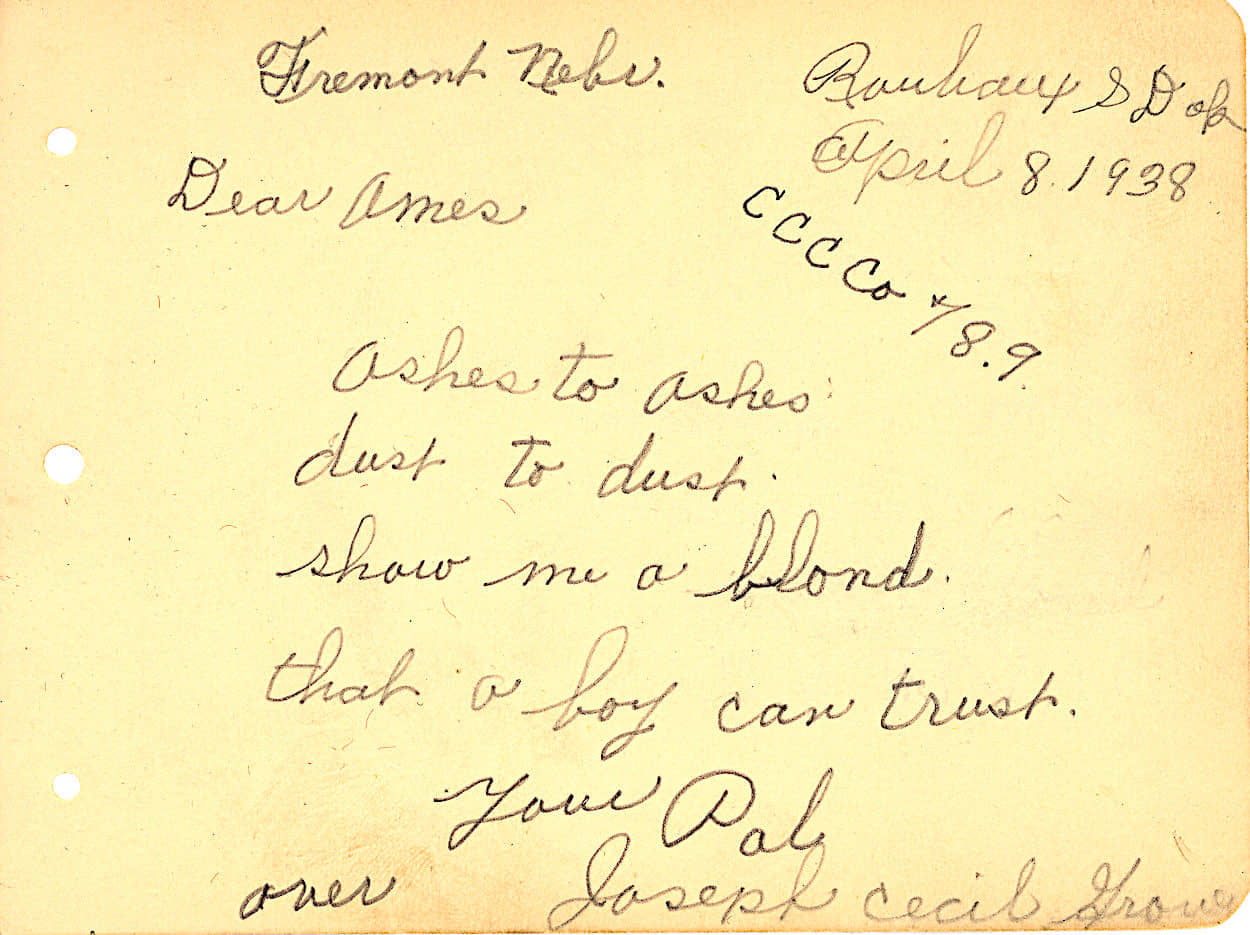 Fremont Nebr.
S Dak
April 8. 1938
Dear Ames
C C C Co
Ashes to Ashes
dust to dust.
show me a blond.
that a boy can trust.
Your Pal
Joseph Cecil
over